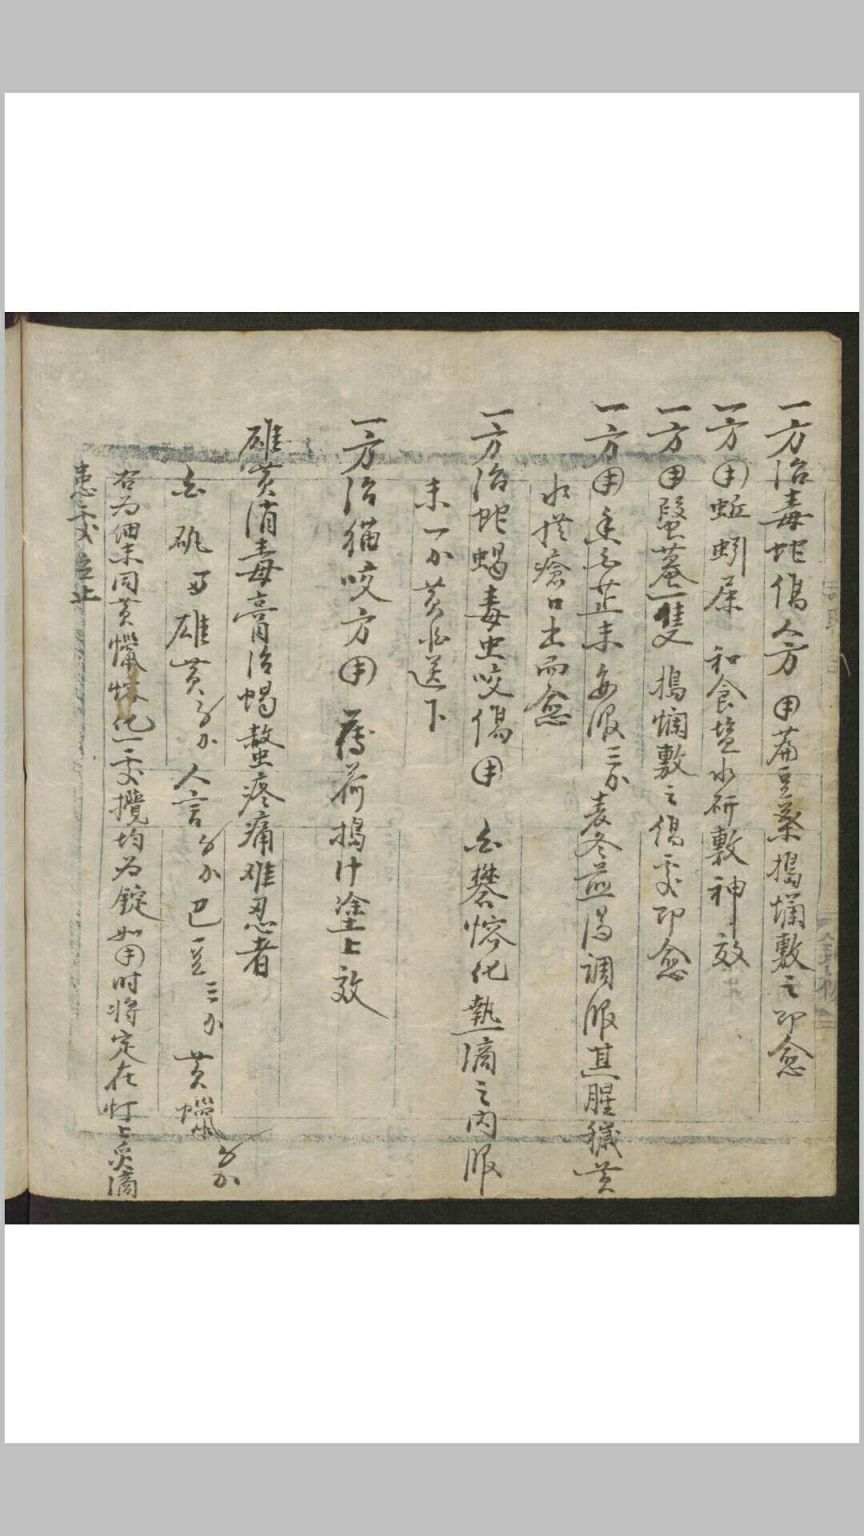 一方治毒蛇傷人方 用萹豆葉搗爛敷之即愈
一方用蚯蚓屎 和食塩水研敷神效
一方用 一隻 搗爛敷之傷處即愈
一方用 白芷末每服三分麦冬 湯調服其腥穢黄
水從瘡口出而愈
一方治蛇蝎毒虫咬傷用 白礬熔化熱滴之内服
末一分黄 送下
一方治猫咬方用 薄荷搗汁塗上效
雄黄消毒膏治蝎螫疼痛难忍者
白矾 雄黄 人言 巴豆三分 黄蠟
右为細末同黄蠟 化一處攪均为錠如用时将定在灯上炙滴
患處立止